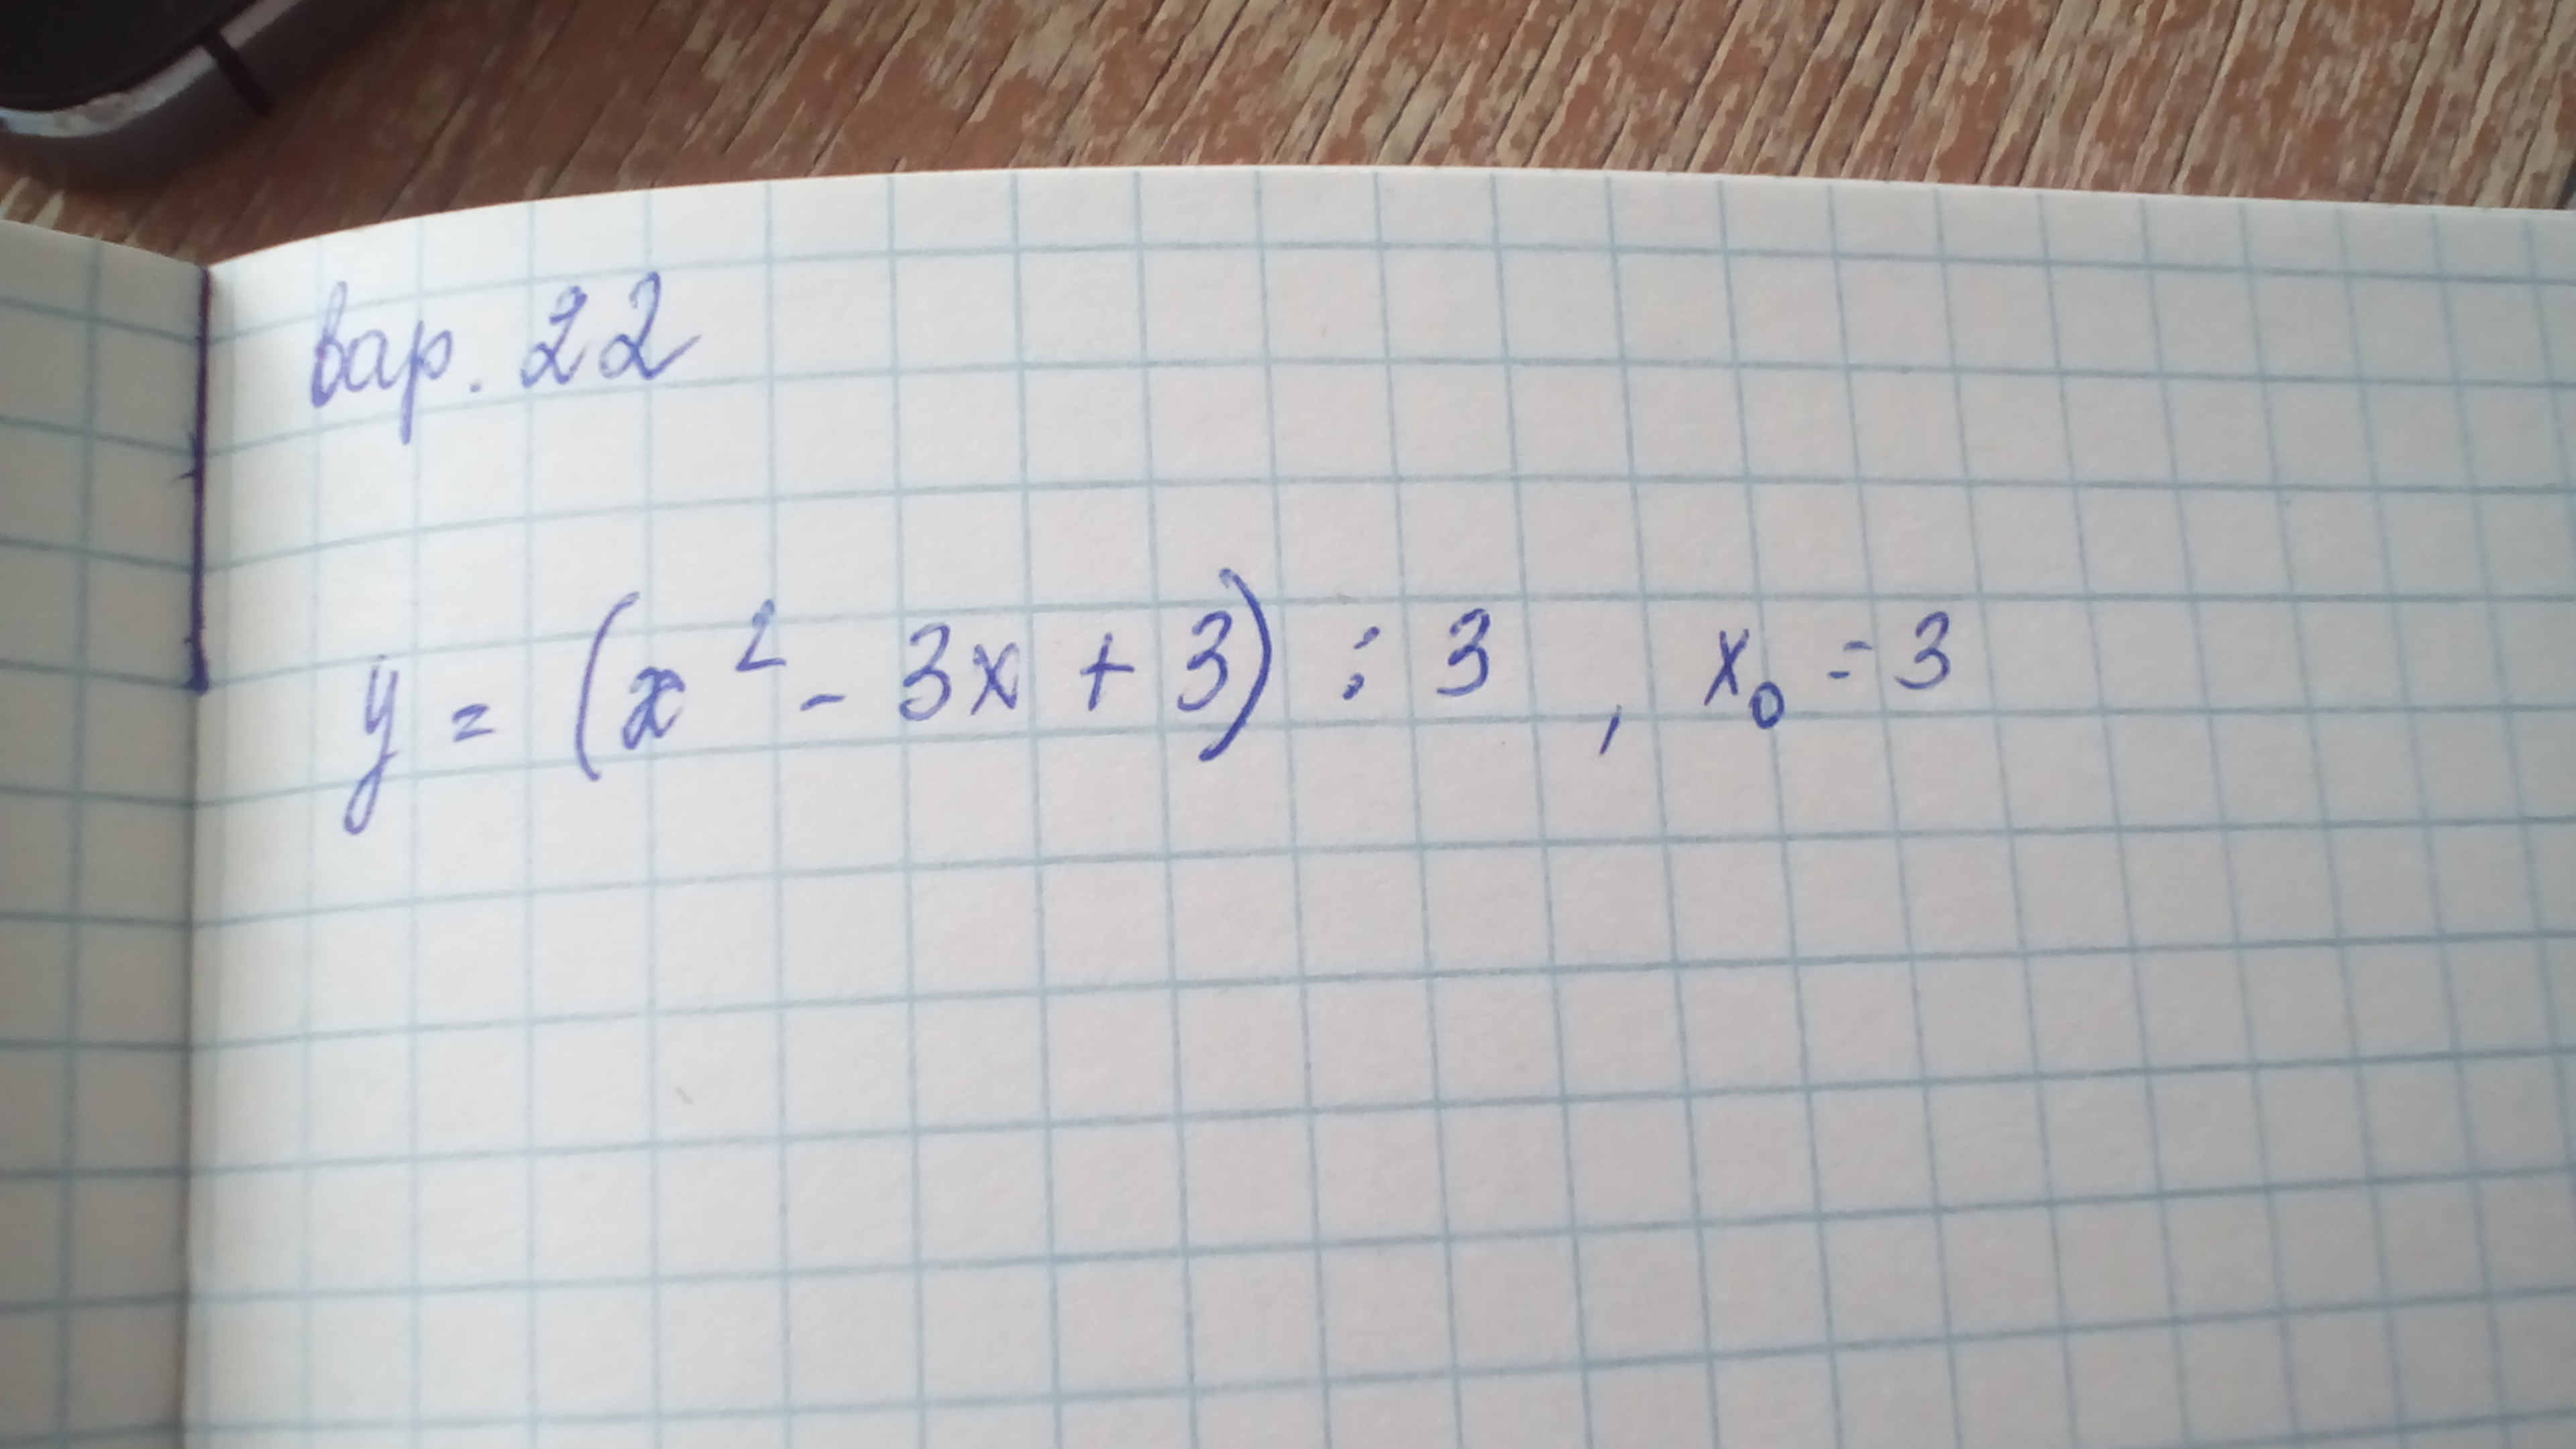 вар. 22
y = (x² - 3x + 3) : 3 , x₀ = 3